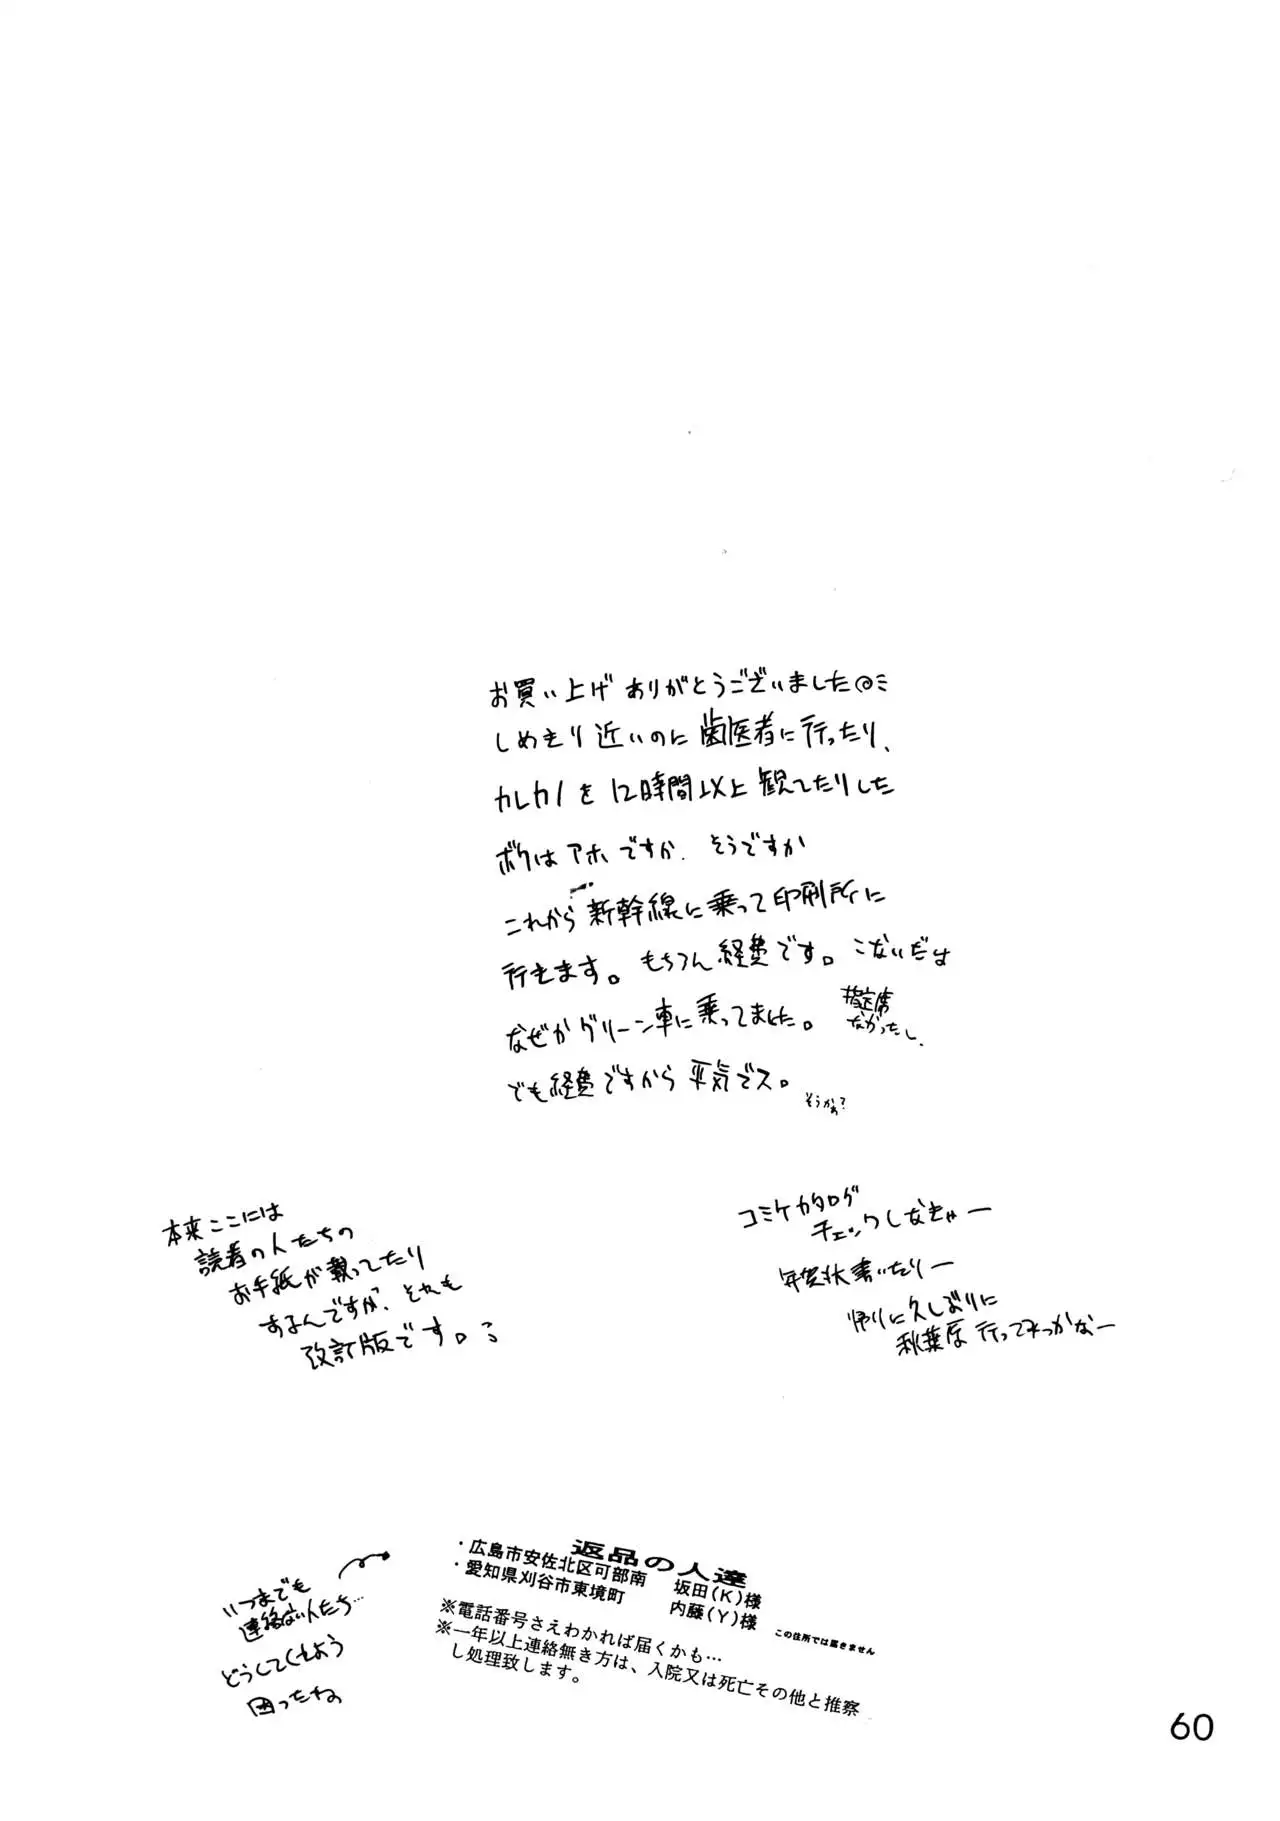 お買い上げありがとうございました@ミ
しめきり近いのに歯医者に行ったり、
カレカノを12時間以上観てたりした
ボクはアホですか。そうですか
これから新幹線に乗って印刷所に
行きます。もちろん経費です。こないだは
なぜかグリーン車に乗ってました。
指定席
なかったし、
でも経費ですから平気でス。
そうかぁ?
本来ここには
読者の人たちの
お手紙が載ってたり
するんですが、それも
改訂版です。
コミケカタログ
チェックしなきゃー
年賀状書いたりー
帰りに久しぶりに
秋葉原行ってみっかなー
いつまでも
連絡ない人たち…
どうしてくれよう
困ったね
返品の人達
・広島市安佐北区可部南 坂田(K)様
・愛知県刈谷市東境町 内藤(Y)様
この住所では届きません
※電話番号さえわかれば届くかも…
※一年以上連絡無き方は、入院又は死亡その他と推察
し処理致します。
60